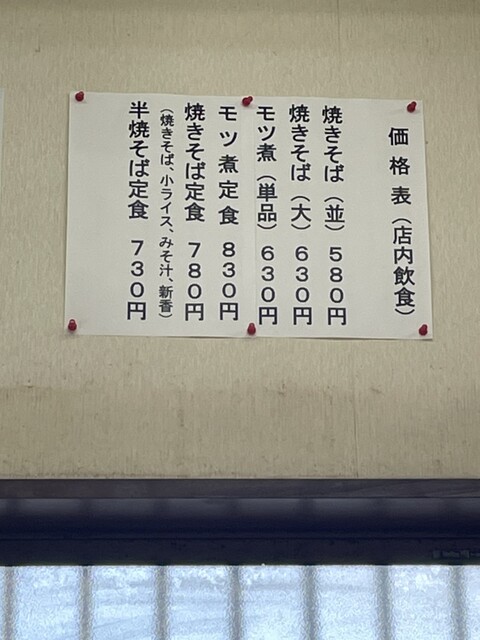 価格表（店内飲食）
焼きそば（並）５８０円
焼きそば（大）６３０円
モツ煮（単品）６３０円
モツ煮定食　８３０円
焼きそば定食　７８０円
（焼きそば、小ライス、みそ汁、新香）
半焼そば定食　７３０円